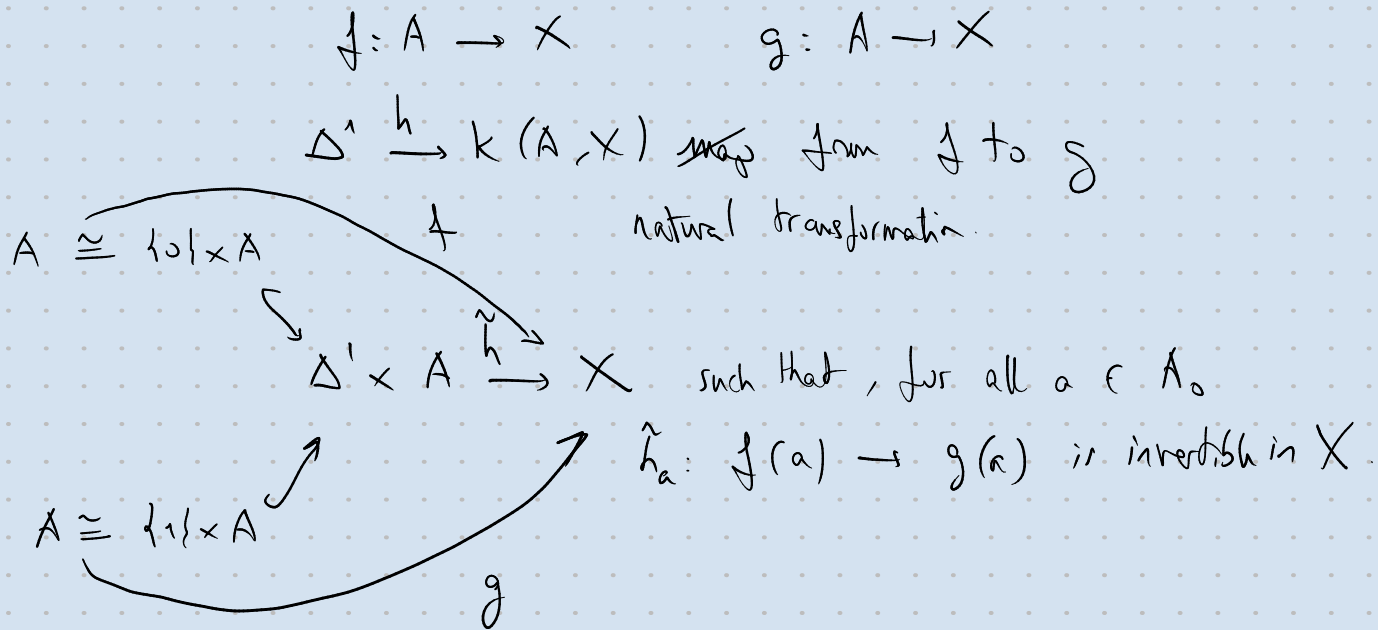 f : A → X g : A → X
Δ¹ →ʰ k (A, X) ~~map~~ from f to g
f natural transformation.
A ≅ {0} × A
h̃
Δ¹ × A → X such that, for all a ∈ A₀
h̃ₐ : f(a) → g(a) is invertible in X.
A ≅ {1} × A
g